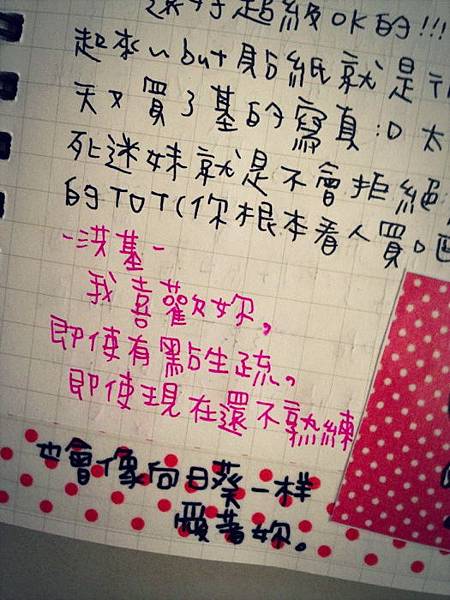 還好超級OK的!!!
起來~but貼紙就是
天又買了基的寫真:D 太
死迷妹就是不會拒絕
的TOT(你根本看人買吧
-洪基-
我喜歡妳,
即使有點生疏。
即使現在還不熟練
也會像向日葵一樣
愛著妳。